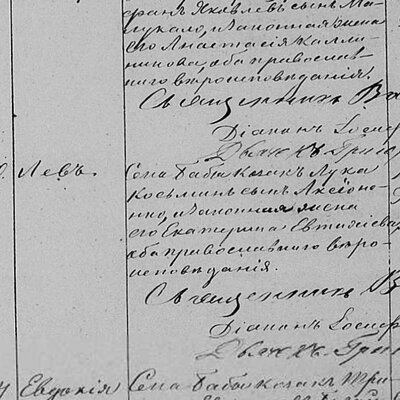 фанъ Яковлевъ сынъ Ма-
лукало, и законная жена
его Анастасія Калли-
никова, оба православ-
наго вѣроисповѣданія.
Священникъ
Діаконъ Іосиф
Дьячекъ Григор
Левъ.
Села Бабы козакъ Лука
Козьминъ сынъ Аксіоно-
нко, и законная жена
его Екатерина Евтихіева
оба православнаго вѣро-
исповѣданія.
Священникъ
Діаконъ Іосиф
Дьячекъ Григ
Евдокія
Села Бабы козакъ Гри-